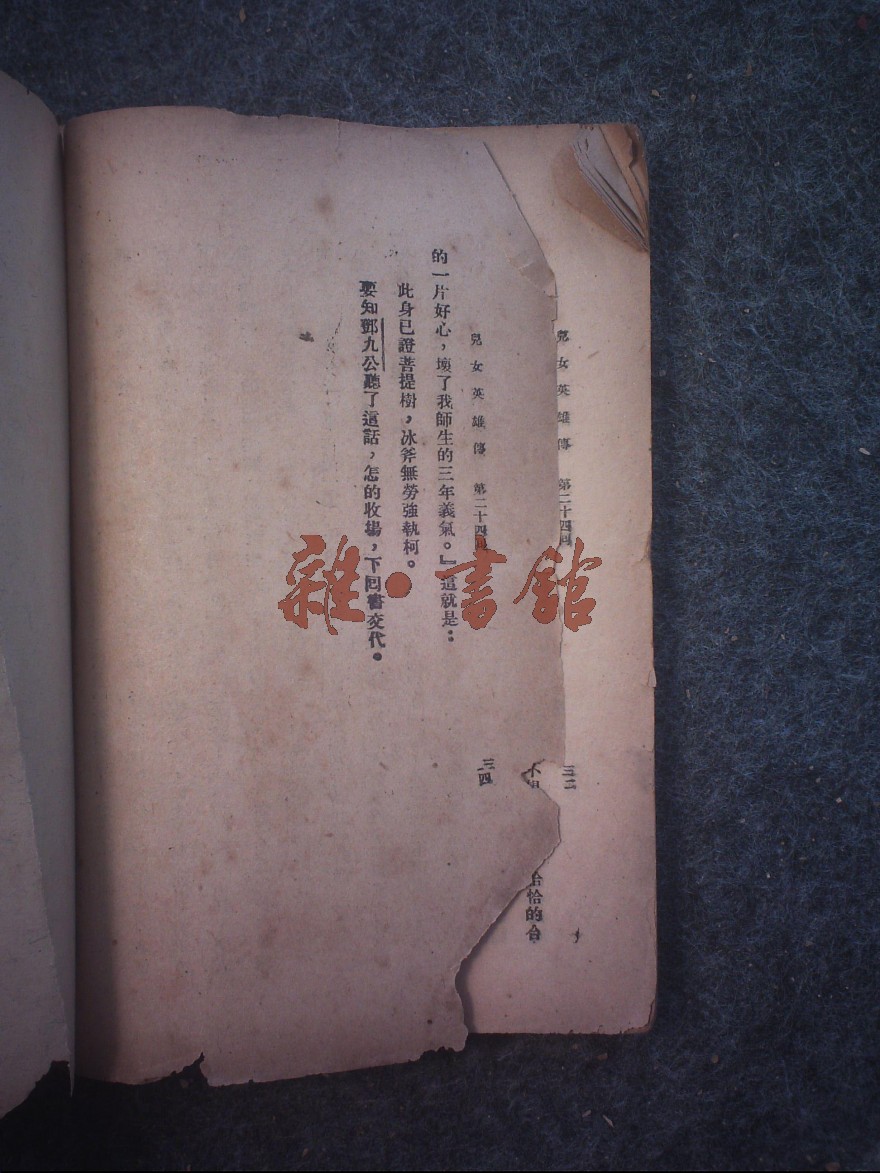 兒女英雄傳　第二十四回
三二
恰的合
兒女英雄傳　第二十四回
三四
的一片好心，壞了我師生的三年義氣。』這就是：
此身已證菩提樹，冰斧無勞強執柯。
要知鄧九公聽了這話，怎的收場，下回書交代。
雜·書館